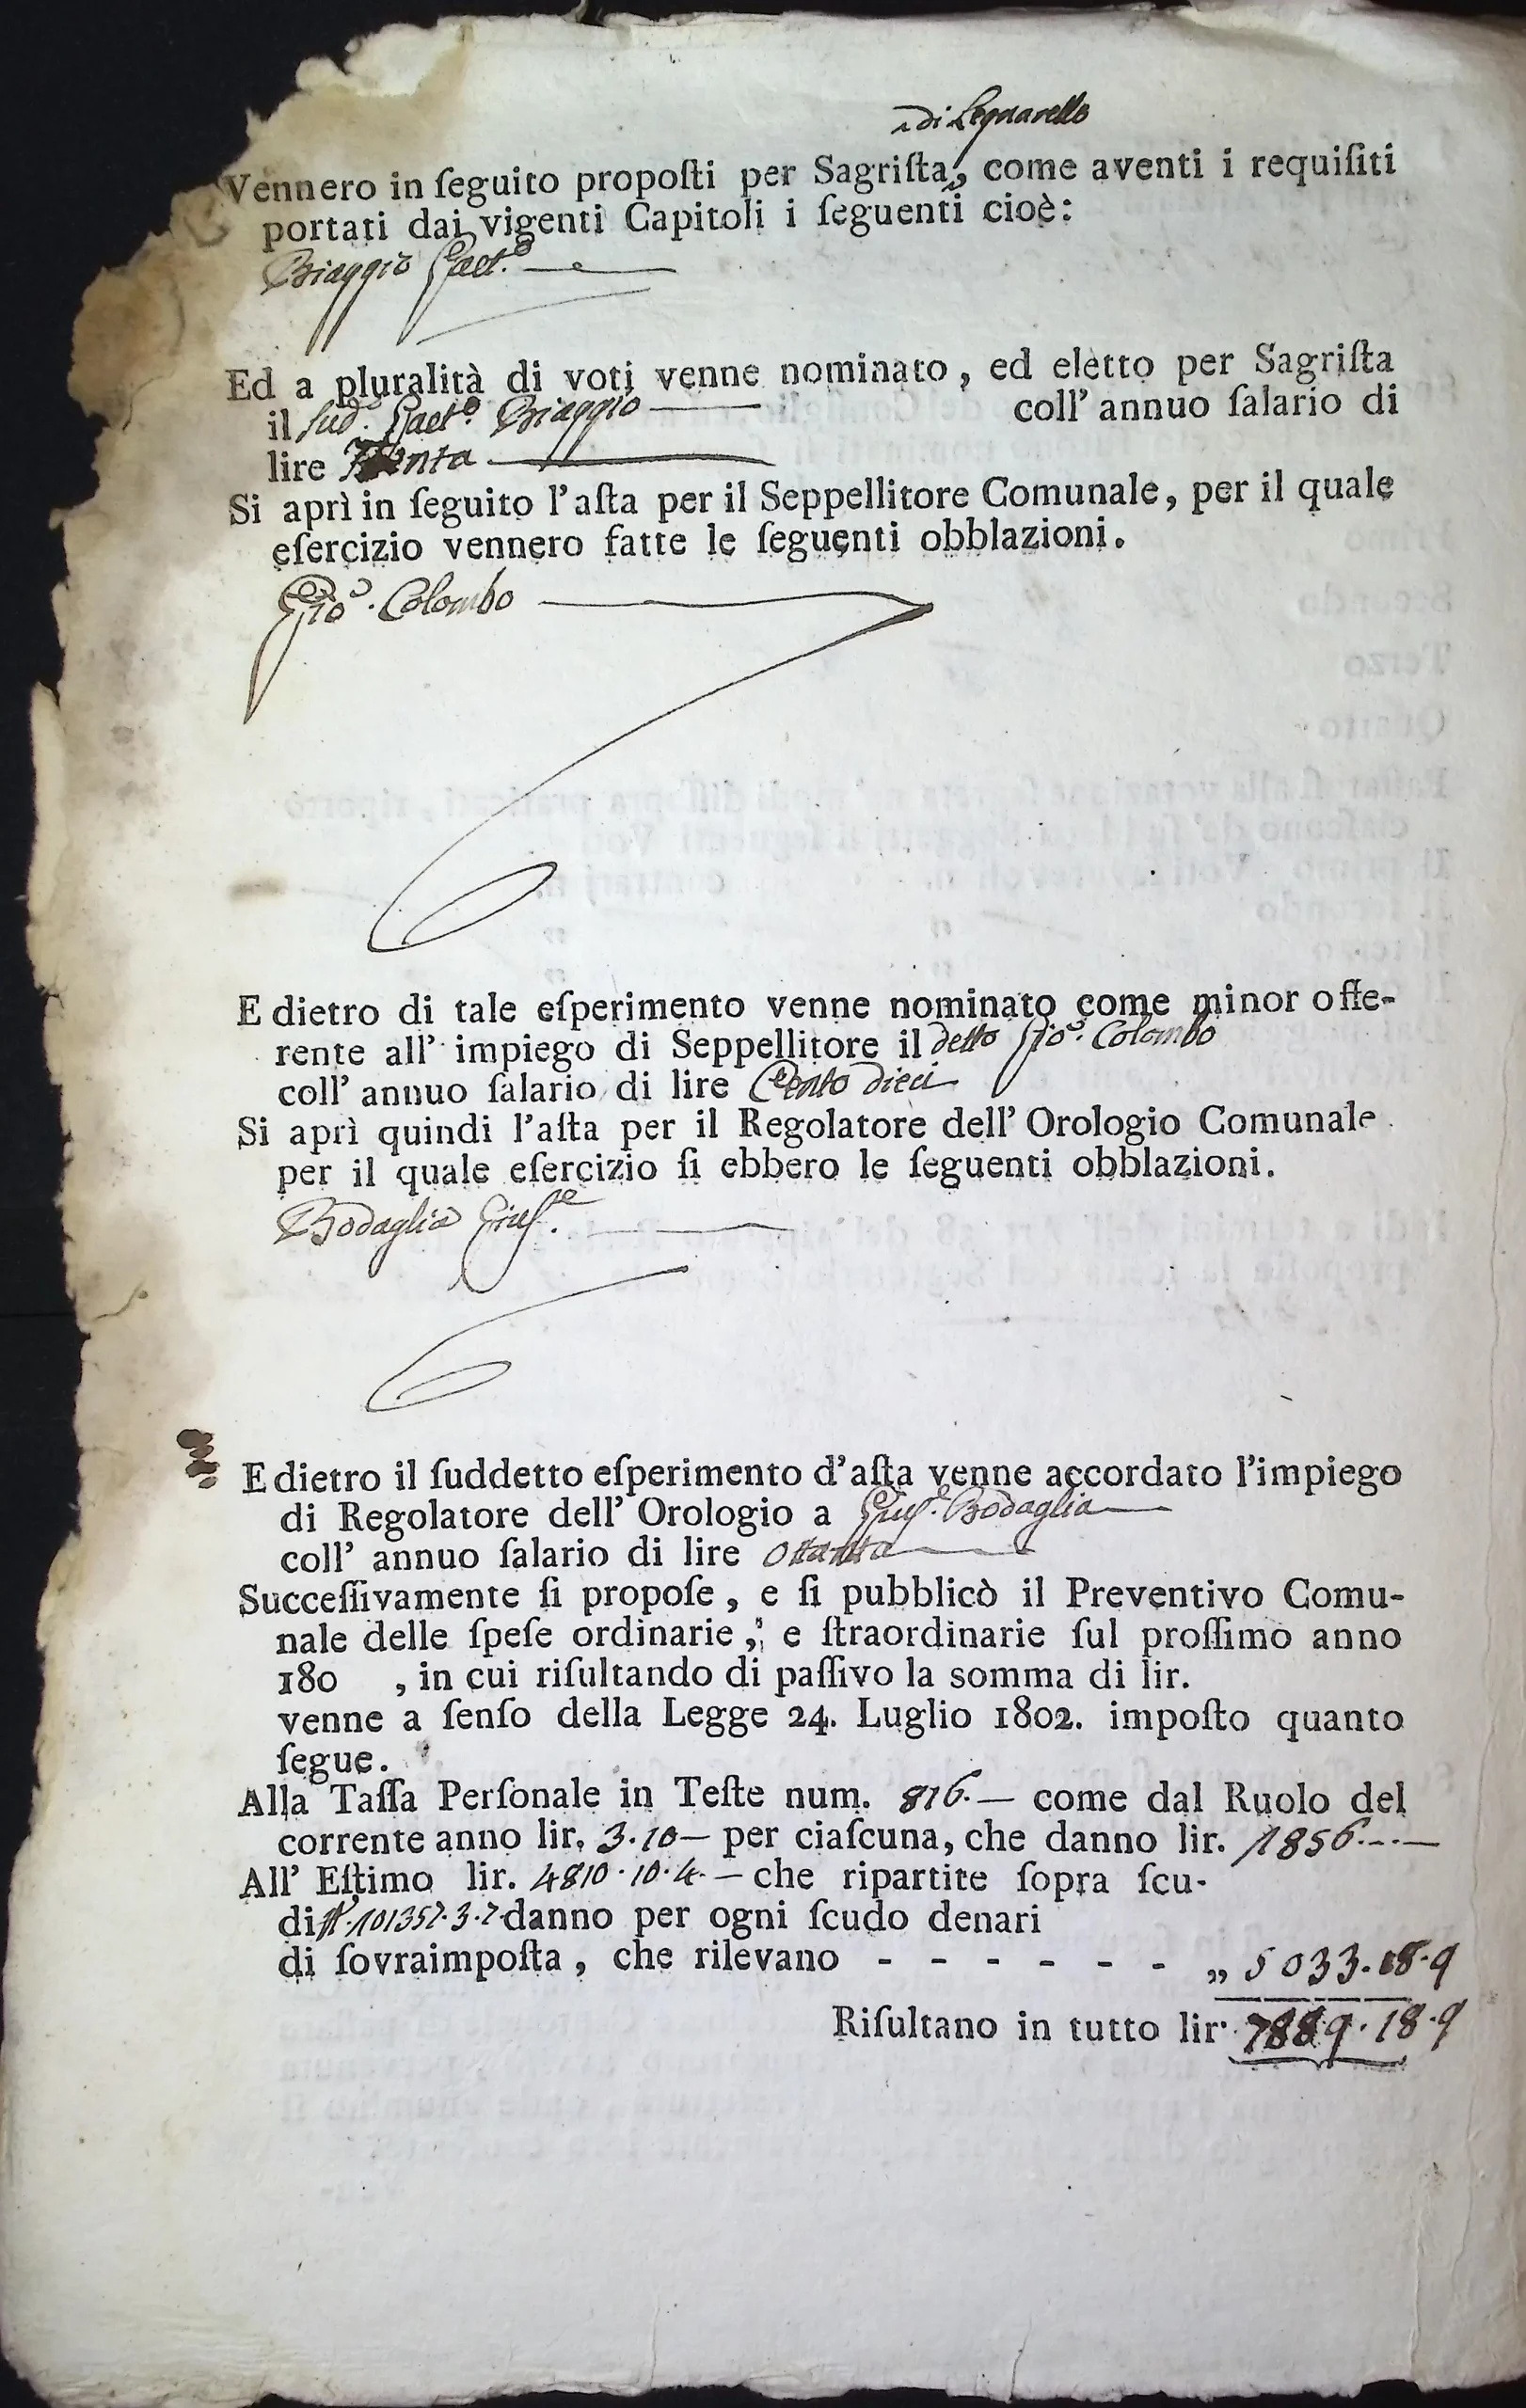 di Legnarello
Vennero in ſeguito propoſti per Sagriſta, come aventi i requiſiti
portati dai vigenti Capitoli i ſeguenti cioè:
Biaggio Gaet.º
Ed a pluralità di voti venne nominato, ed eletto per Sagriſta
il ſud.º Gaet.º Biaggio coll' annuo ſalario di
lire Trenta
Si aprì in ſeguito l'aſta per il Seppellitore Comunale, per il quale
eſercizio vennero fatte le ſeguenti obblazioni.
Gio. Colombo
E dietro di tale eſperimento venne nominato come minor offe-
rente all' impiego di Seppellitore il detto Gio. Colombo
coll' annuo ſalario di lire Cento dieci
Si aprì quindi l'aſta per il Regolatore dell' Orologio Comunale
per il quale eſercizio ſi ebbero le ſeguenti obblazioni.
Bodaglia Giuſ.e
E dietro il ſuddetto eſperimento d'aſta venne accordato l'impiego
di Regolatore dell' Orologio a Giuſ.e Bodaglia
coll' annuo ſalario di lire Ottanta
Succeſſivamente ſi propoſe, e ſi pubblicò il Preventivo Comu-
nale delle ſpeſe ordinarie, e ſtraordinarie ſul proſſimo anno
180 , in cui riſultando di paſſivo la somma di lir.
venne a ſenſo della Legge 24. Luglio 1802. impoſto quanto
ſegue.
Alla Taſſa Perſonale in Teſte num. 816.— come dal Ruolo del
corrente anno lir. 3.10— per ciaſcuna, che danno lir. 1856.-.-
All' Eſtimo lir. 4810.10.4.— che ripartite ſopra ſcu-
di 101357.3.7 danno per ogni ſcudo denari
di ſovraimpoſta, che rilevano - - - - - - „ 5033.18.9
Riſultano in tutto lir. 7889.18.9